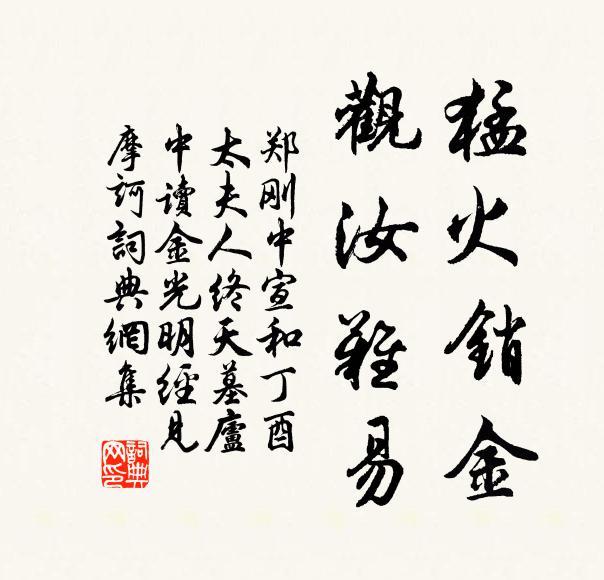 猛火銷金
觀汝難易
郑刚中宣和丁酉
太夫人终天墓廬
中讀金光明經見
摩訶詞典網集
詞典
网印